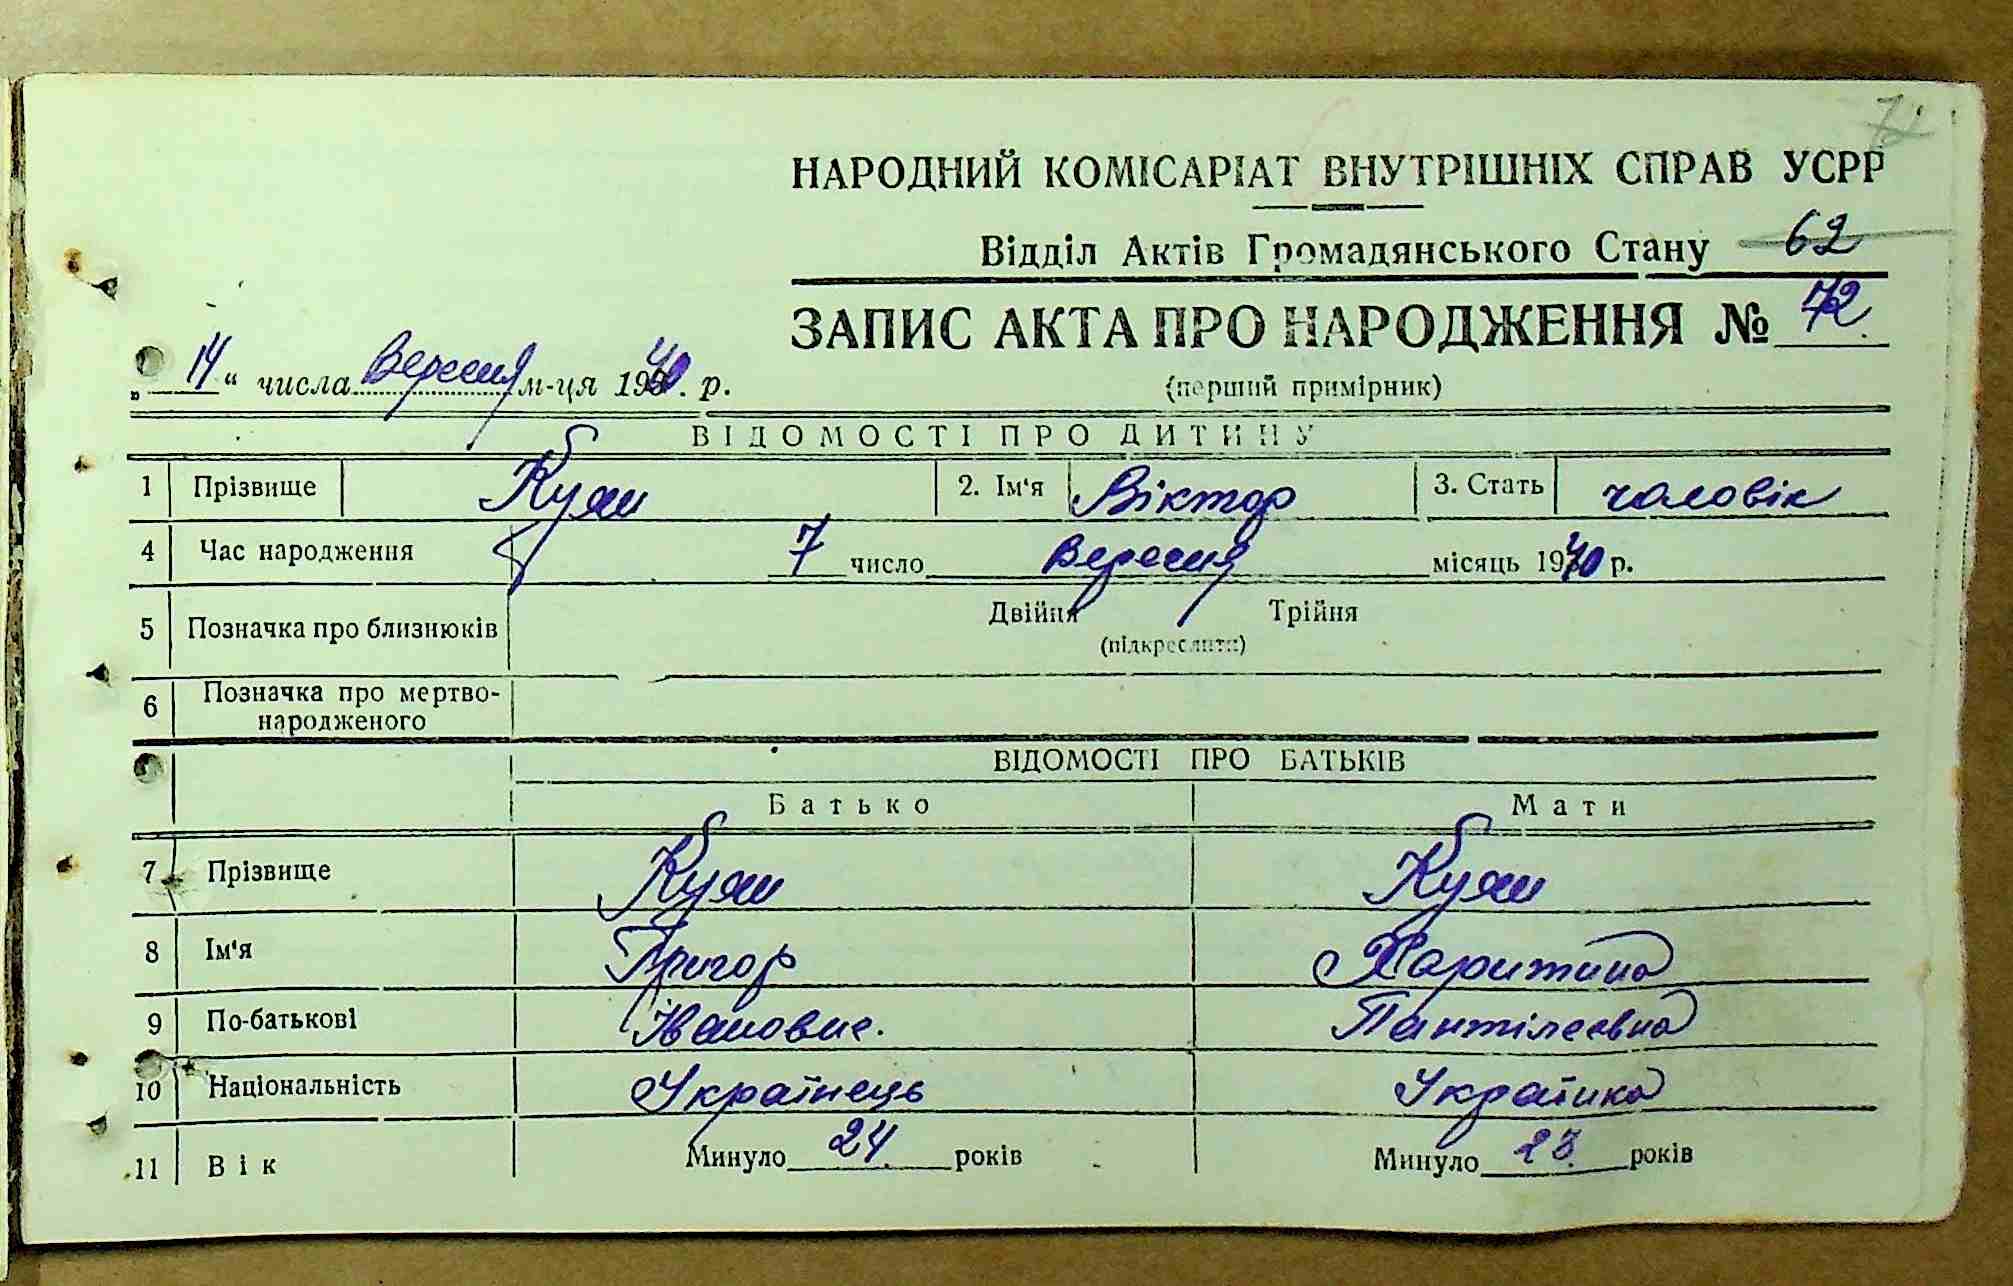 72
НАРОДНИЙ КОМІСАРІАТ ВНУТРІШНІХ СПРАВ УСРР
Відділ Актів Громадянського Стану 62
ЗАПИС АКТА ПРО НАРОДЖЕННЯ № 72.
„14“ числа Вересня м-ця 1940. р. (перший примірник)
ВІДОМОСТІ ПРО ДИТИНУ
1 Прізвище 2. Ім'я Віктор 3. Стать чоловік
4 Час народження 7 число Вересня місяць 1940 р.
5 Позначка про близнюків Двійня Трійня
(підкреслити)
6 Позначка про мертво-
народженого
ВІДОМОСТІ ПРО БАТЬКІВ
Батько Мати
7 Прізвище
8 Ім'я Григор Харитина
9 По-батькові Івановис. Пантілеовна
10 Національність Українець Українка
11 Вік Минуло 24 років Минуло 23 років